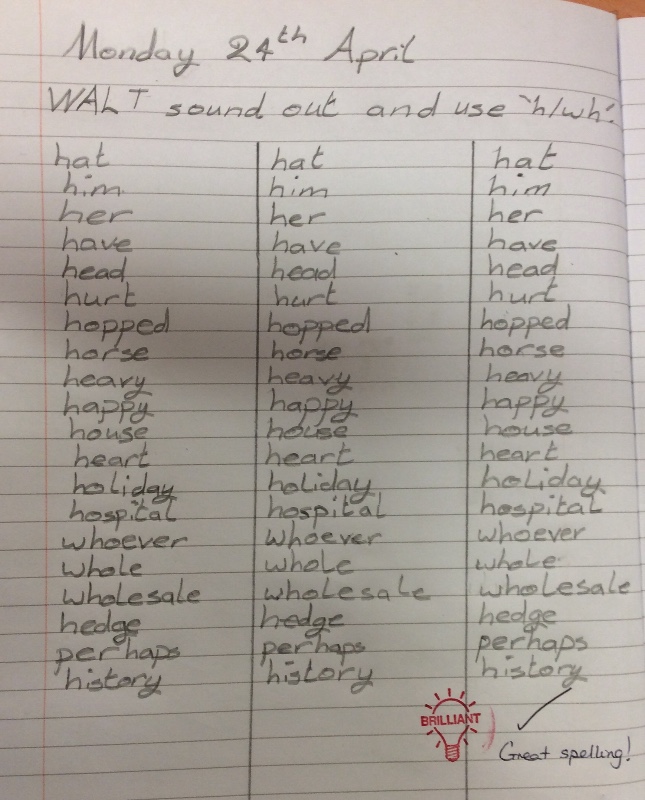 Monday 24th April
WALT sound out and use 'h/wh'.
hat hat hat
him him him
her her her
have have have
head head head
hurt hurt hurt
hopped hopped hopped
horse horse horse
heavy heavy heavy
happy happy happy
house house house
heart heart heart
holiday holiday holiday
hospital hospital hospital
whoever whoever whoever
whole whole whole
wholesale wholesale wholesale
hedge hedge hedge
perhaps perhaps perhaps
history history history
BRILLIANT
Great spelling!